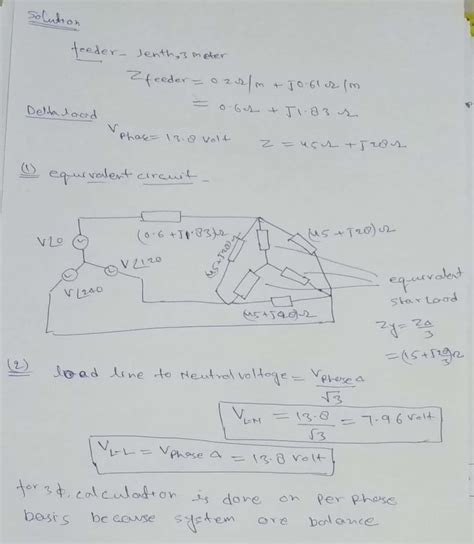 Solution
feeder - lenth, 3 meter
Zfeeder = 0.2Ω/m + J0.61Ω/m
= 0.6Ω + J1.83Ω
Delta load
Vphase = 13.8 volt Z = 45Ω + J28Ω
(1) equivalent circuit -
(0.6+J1.83)Ω
(45+J28)Ω
(45+J28)Ω
V∠0
V∠120
V∠240
(45+J28)Ω
equivalent
star load
Zy = ZΔ/3
= (15 + J28/3)Ω
(2) load line to Neutral voltage = VphaseΔ/√3
VL-N = 13.8/√3 = 7.96 volt
VL-L = Vphase Δ = 13.8 volt
for 3ϕ, calculation is done on per phase
basis because system are balance